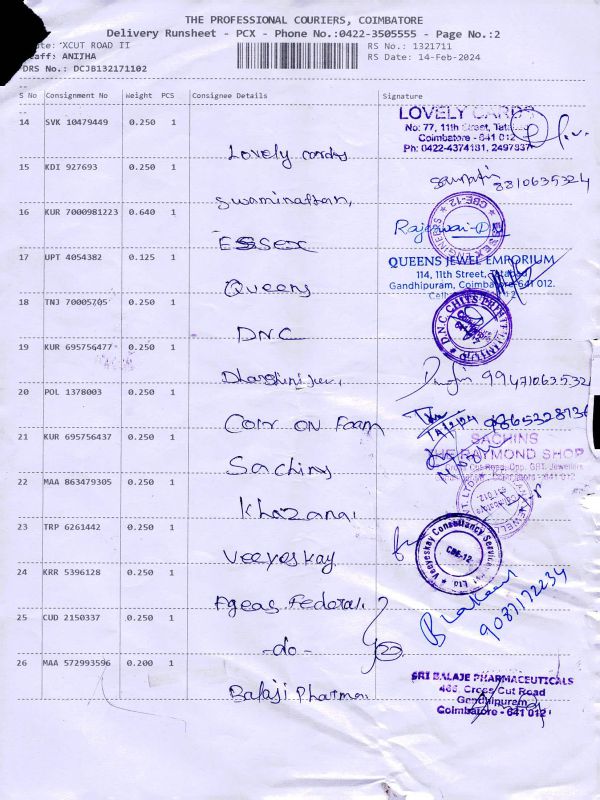 THE PROFESSIONAL COURIERS, COIMBATORE
Delivery Runsheet - PCX - Phone No.:0422-3505555 - Page No.:2
XCUT ROAD II RS No.: 1321711
ANITHA RS Date: 14-Feb-2024
DRS No.: DCJB132171102
S No Consignment No Weight PCS Consignee Details Signature
14 SVK 10479449 0.250 1 LOVELY CARDS
No: 77, 11th Street,
Coimbatore - 641 012
Ph: 0422-4374181, 2497837
Lovely cards
15 KDI 927693 0.250 1
8810635324
Swaminathan,
16 KUR 7000981223 0.640 1 CBE-12
ESSEX
17 UPT 4054382 0.125 1 QUEENS JEWEL EMPORIUM
114, 11th Street, Tatabad
Gandhipuram, Coimbatore-641 012.
Queens
18 TNJ 70005705 0.250 1 D.N.C. CHITS PRIVATE LIMITED
DNC
19 KUR 695756477 0.250 1
20 POL 1378003 0.250 1
Coir ON Foam
21 KUR 695756437 0.250 1 SACHINS
THE RAYMOND SHOP
Sachins
22 MAA 863479305 0.250 1
Khazana
23 TRP 6261442 0.250 1 Veeyeskay Consultancy Service Pvt Ltd
CBE-12
Veeyeskay
24 KRR 5396128 0.250 1
Ageas Federal
9087172234
25 CUD 2150337 0.250 1
-do-
26 MAA 572993596 0.200 1 SRI BALAJE PHARMACEUTICALS
466, Cross Cut Road
Gandhipuram
Coimbatore - 641 012
Balaji Pharma